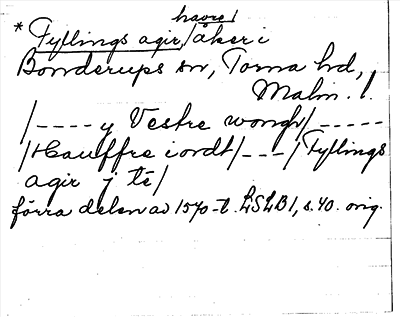 havre/
* Fyllings agir/åker i
Bonderups sn, Torna hd,
Malm. l.
/---- y Vestre wongh/-----
/Hauffre iordt/---/Fyllings
agir j tė/
förra delen av 1570-t. LSLB1, s. 40. orig.